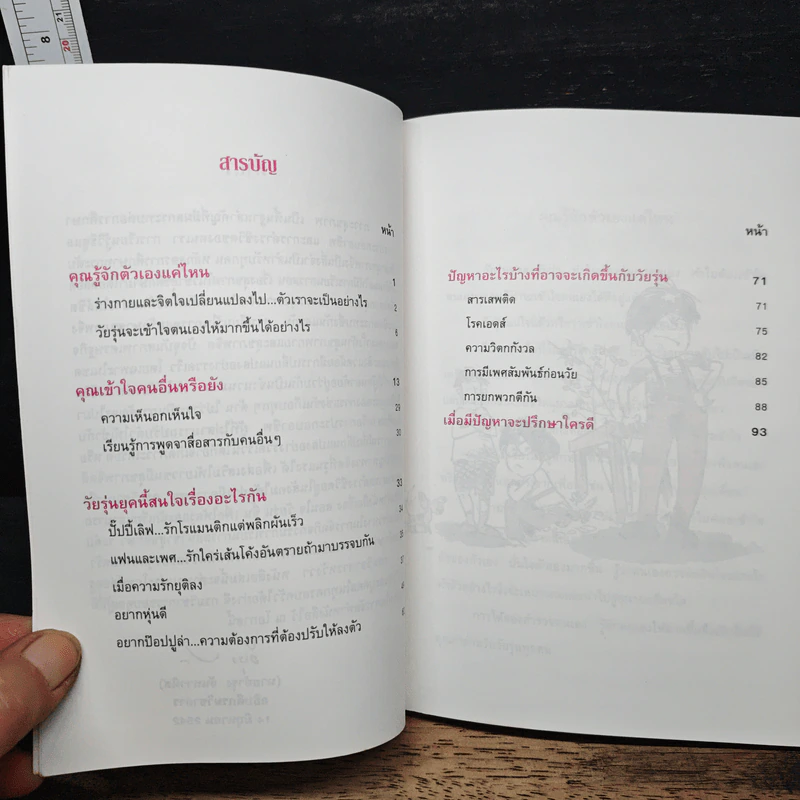 8
20
21
สารบัญ
หน้า
คุณรู้จักตัวเองแค่ไหน 1
ร่างกายและจิตใจเปลี่ยนแปลงไป...ตัวเราจะเป็นอย่างไร 2
วัยรุ่นจะเข้าใจตนเองให้มากขึ้นได้อย่างไร
คุณเข้าใจคนอื่นหรือยัง 13
ความเห็นอกเห็นใจ 29
เรียนรู้การพูดจาสื่อสารกับคนอื่นๆ 30
วัยรุ่นยุคนี้สนใจเรื่องอะไรกัน 33
ปั๊ปปี้เลิฟ...รักโรแมนติกแต่พลิกผันเร็ว
แฟนและเพศ...รักใคร่เส้นโค้งอันตรายถ้ามาบรรจบกัน
เมื่อความรักยุติลง
อยากหุ่นดี
อยากป๊อปปูล่า...ความต้องการที่ต้องปรับให้ลงตัว
หน้า
ปัญหาอะไรบ้างที่อาจจะเกิดขึ้นกับวัยรุ่น 71
สารเสพติด 71
โรคเอดส์ 75
ความวิตกกังวล 82
การมีเพศสัมพันธ์ก่อนวัย 85
การยกพวกตีกัน 88
เมื่อมีปัญหาจะปรึกษาใครดี 93